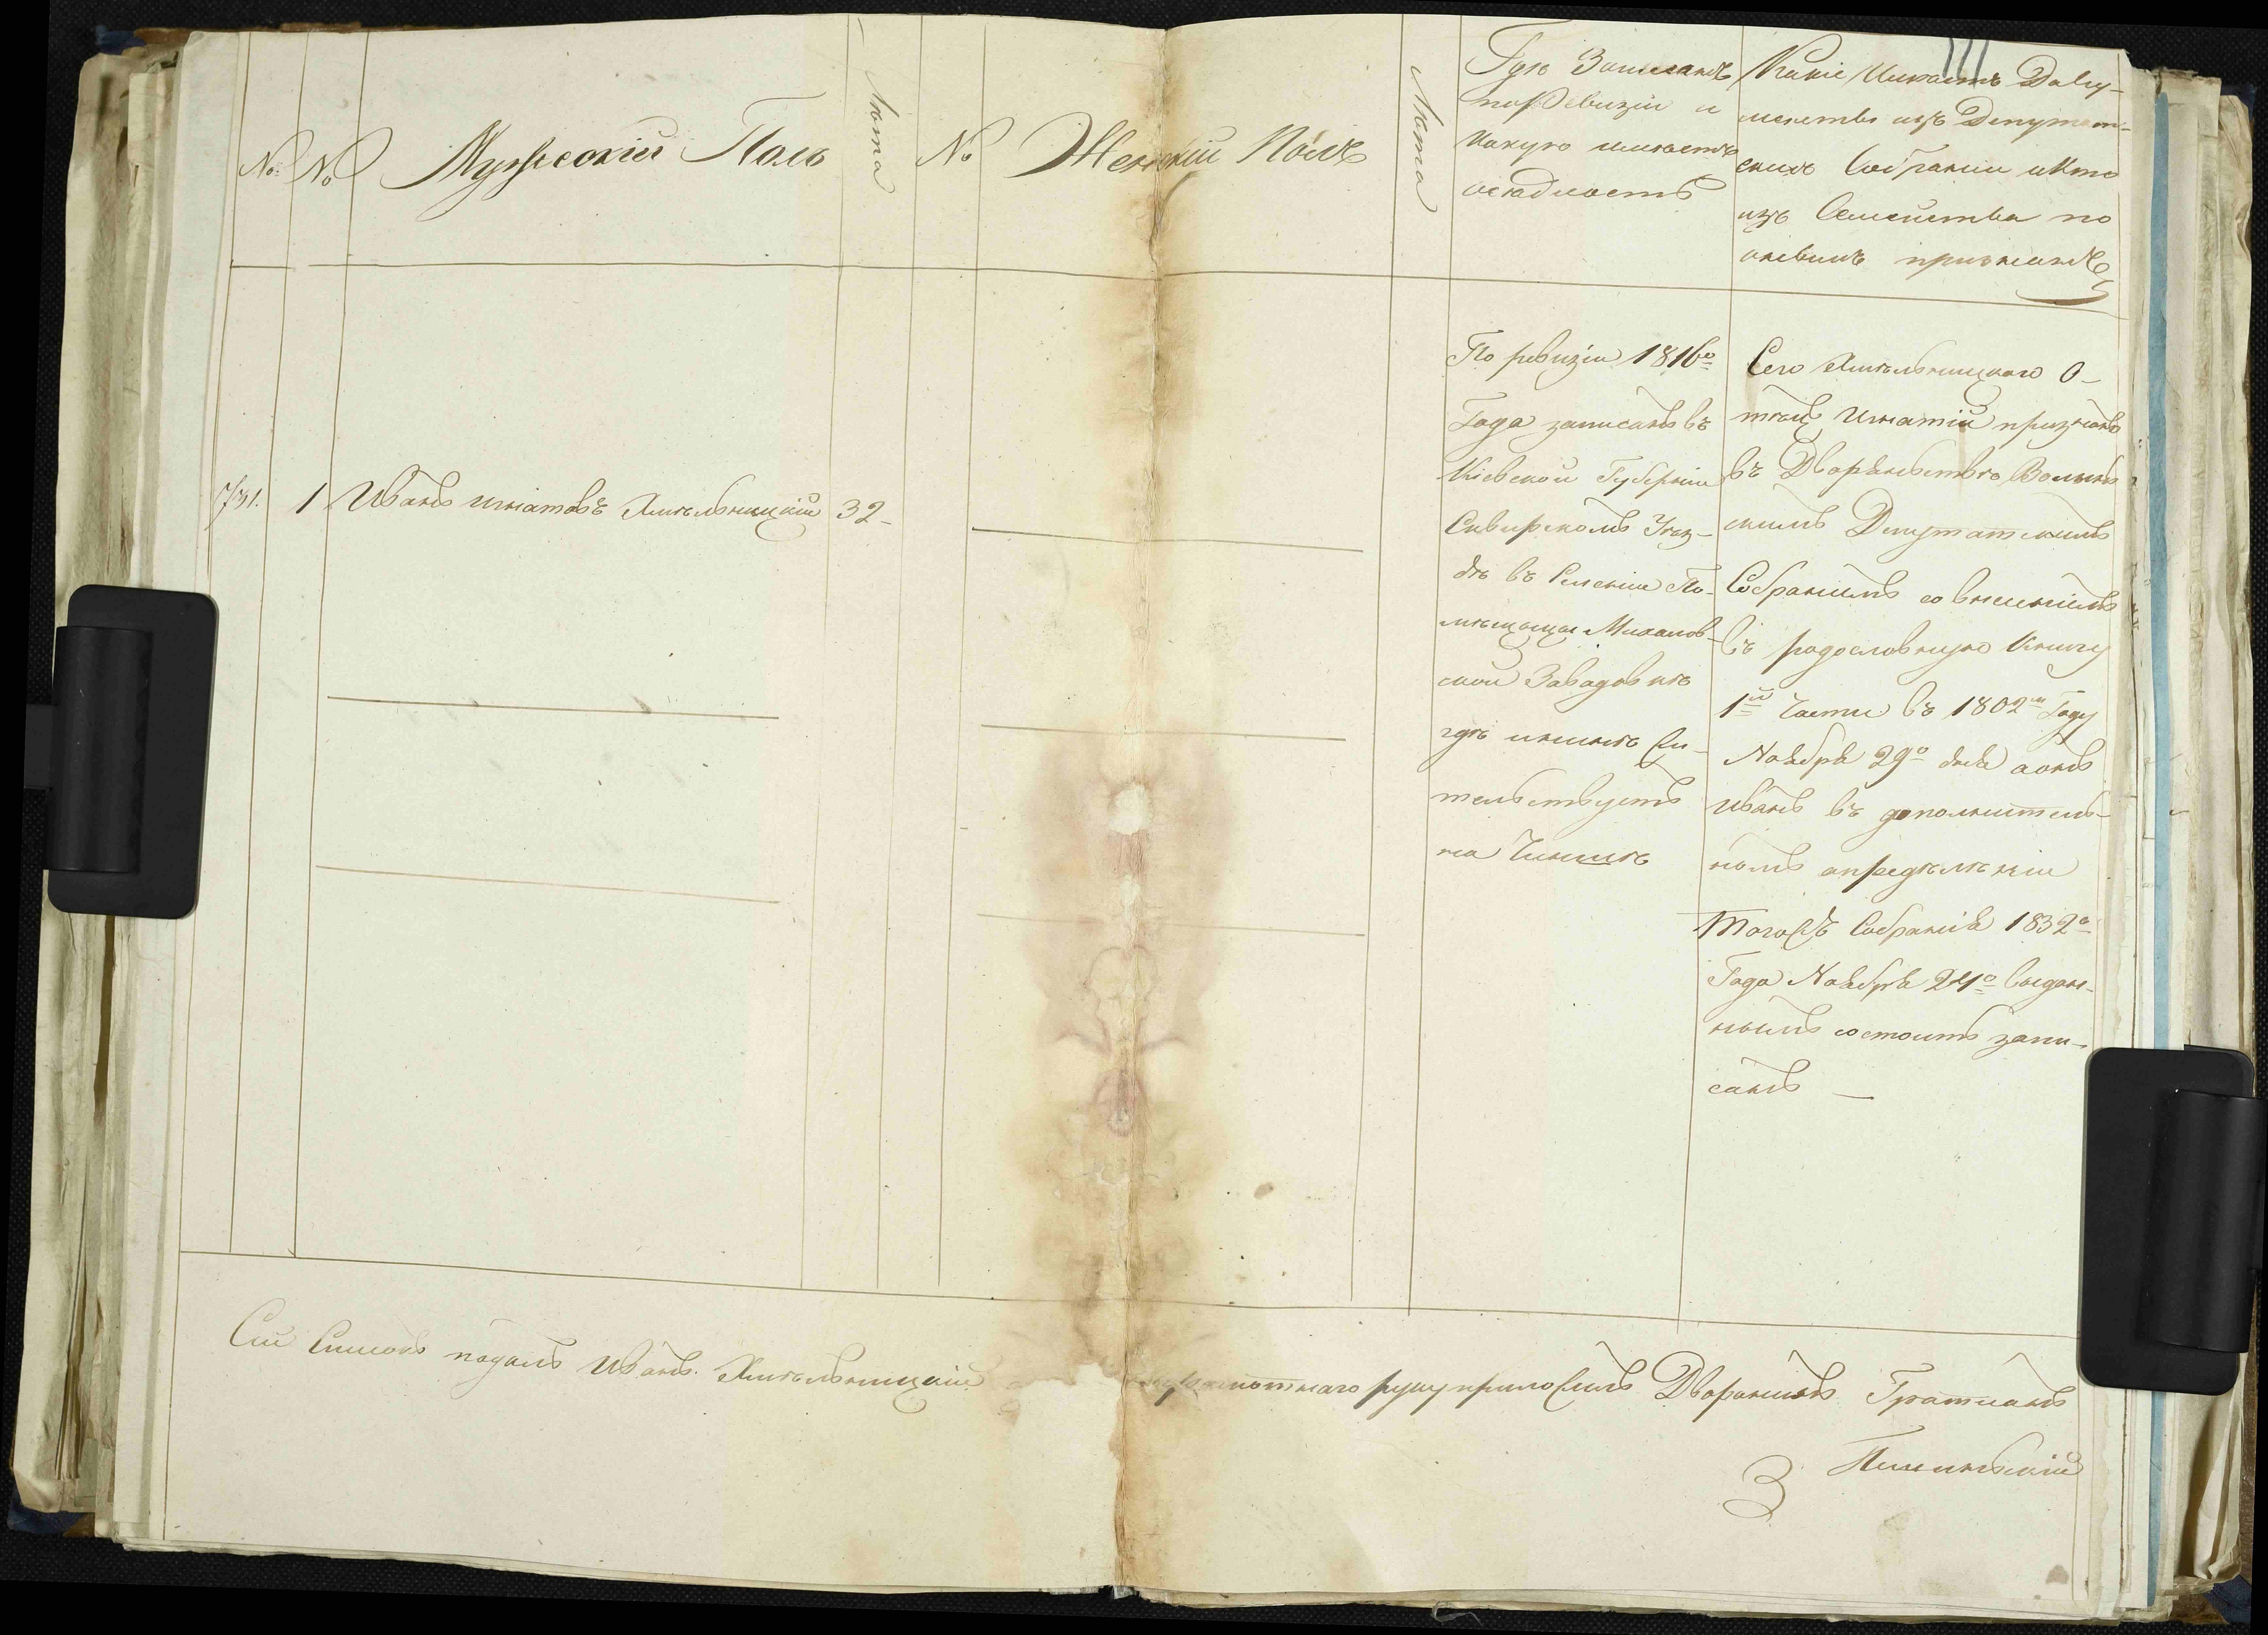 111
№ № Мужеский Полъ Лѣта № Женский Полъ Лѣта
Гдѣ Записанъ
по Ревизіи и
какую имѣетъ
осѣдлость
Какіе Имѣетъ Доку-
менты изъ Депутат-
скихъ Собраній и Кто
изъ Семейства по
онымъ признанъ
1 Иванъ Игнатовъ Хмѣльницкий 32
По ревизіи 1816го
Года записанъ въ
Кіевской Губерніи
Сквирскомъ Уез-
дѣ въ Селеніи По-
мѣщицы Михалов-
ской Завадовкѣ
гдѣ и нынѣ Жи-
тельствуетъ
на Чиншѣ
Сего Хмѣльницкаго О-
тецъ Игнатій признанъ
въ Дворянствѣ Волынь
скимъ Депутатскимъ
Собраніемъ со внесеніемъ
въ родословную Книгу
1й Части въ 1802м Году
Ноября 29го дня а онъ
Иванъ въ дополнитель-
номъ опредѣленіи
тогожъ Собранія 1832го
Года Ноября 24го выдан-
нымъ состоитъ запи-
санъ —
Сей Списокъ подалъ Иванъ Хмѣльницкий неграмотнаго руку приложилъ Дворянинъ Гратианъ